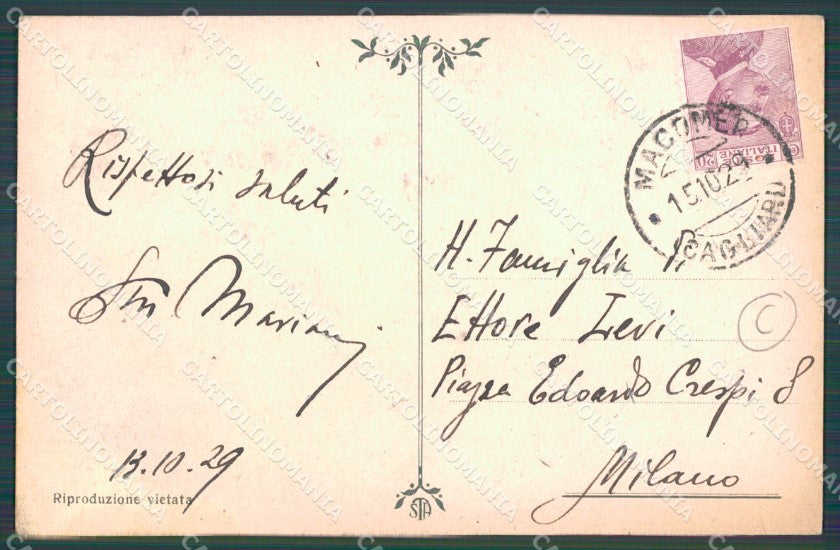 Rispettosi saluti
Mariani
13.10.29
Riproduzione vietata
STA
ITALIANE 20
MACOMER
15.10.29
(CAGLIARI)
H. Famiglia
Ettore Levi
Piazza Edoardo Crespi 8
Milano
C
CARTOLINOMANIA